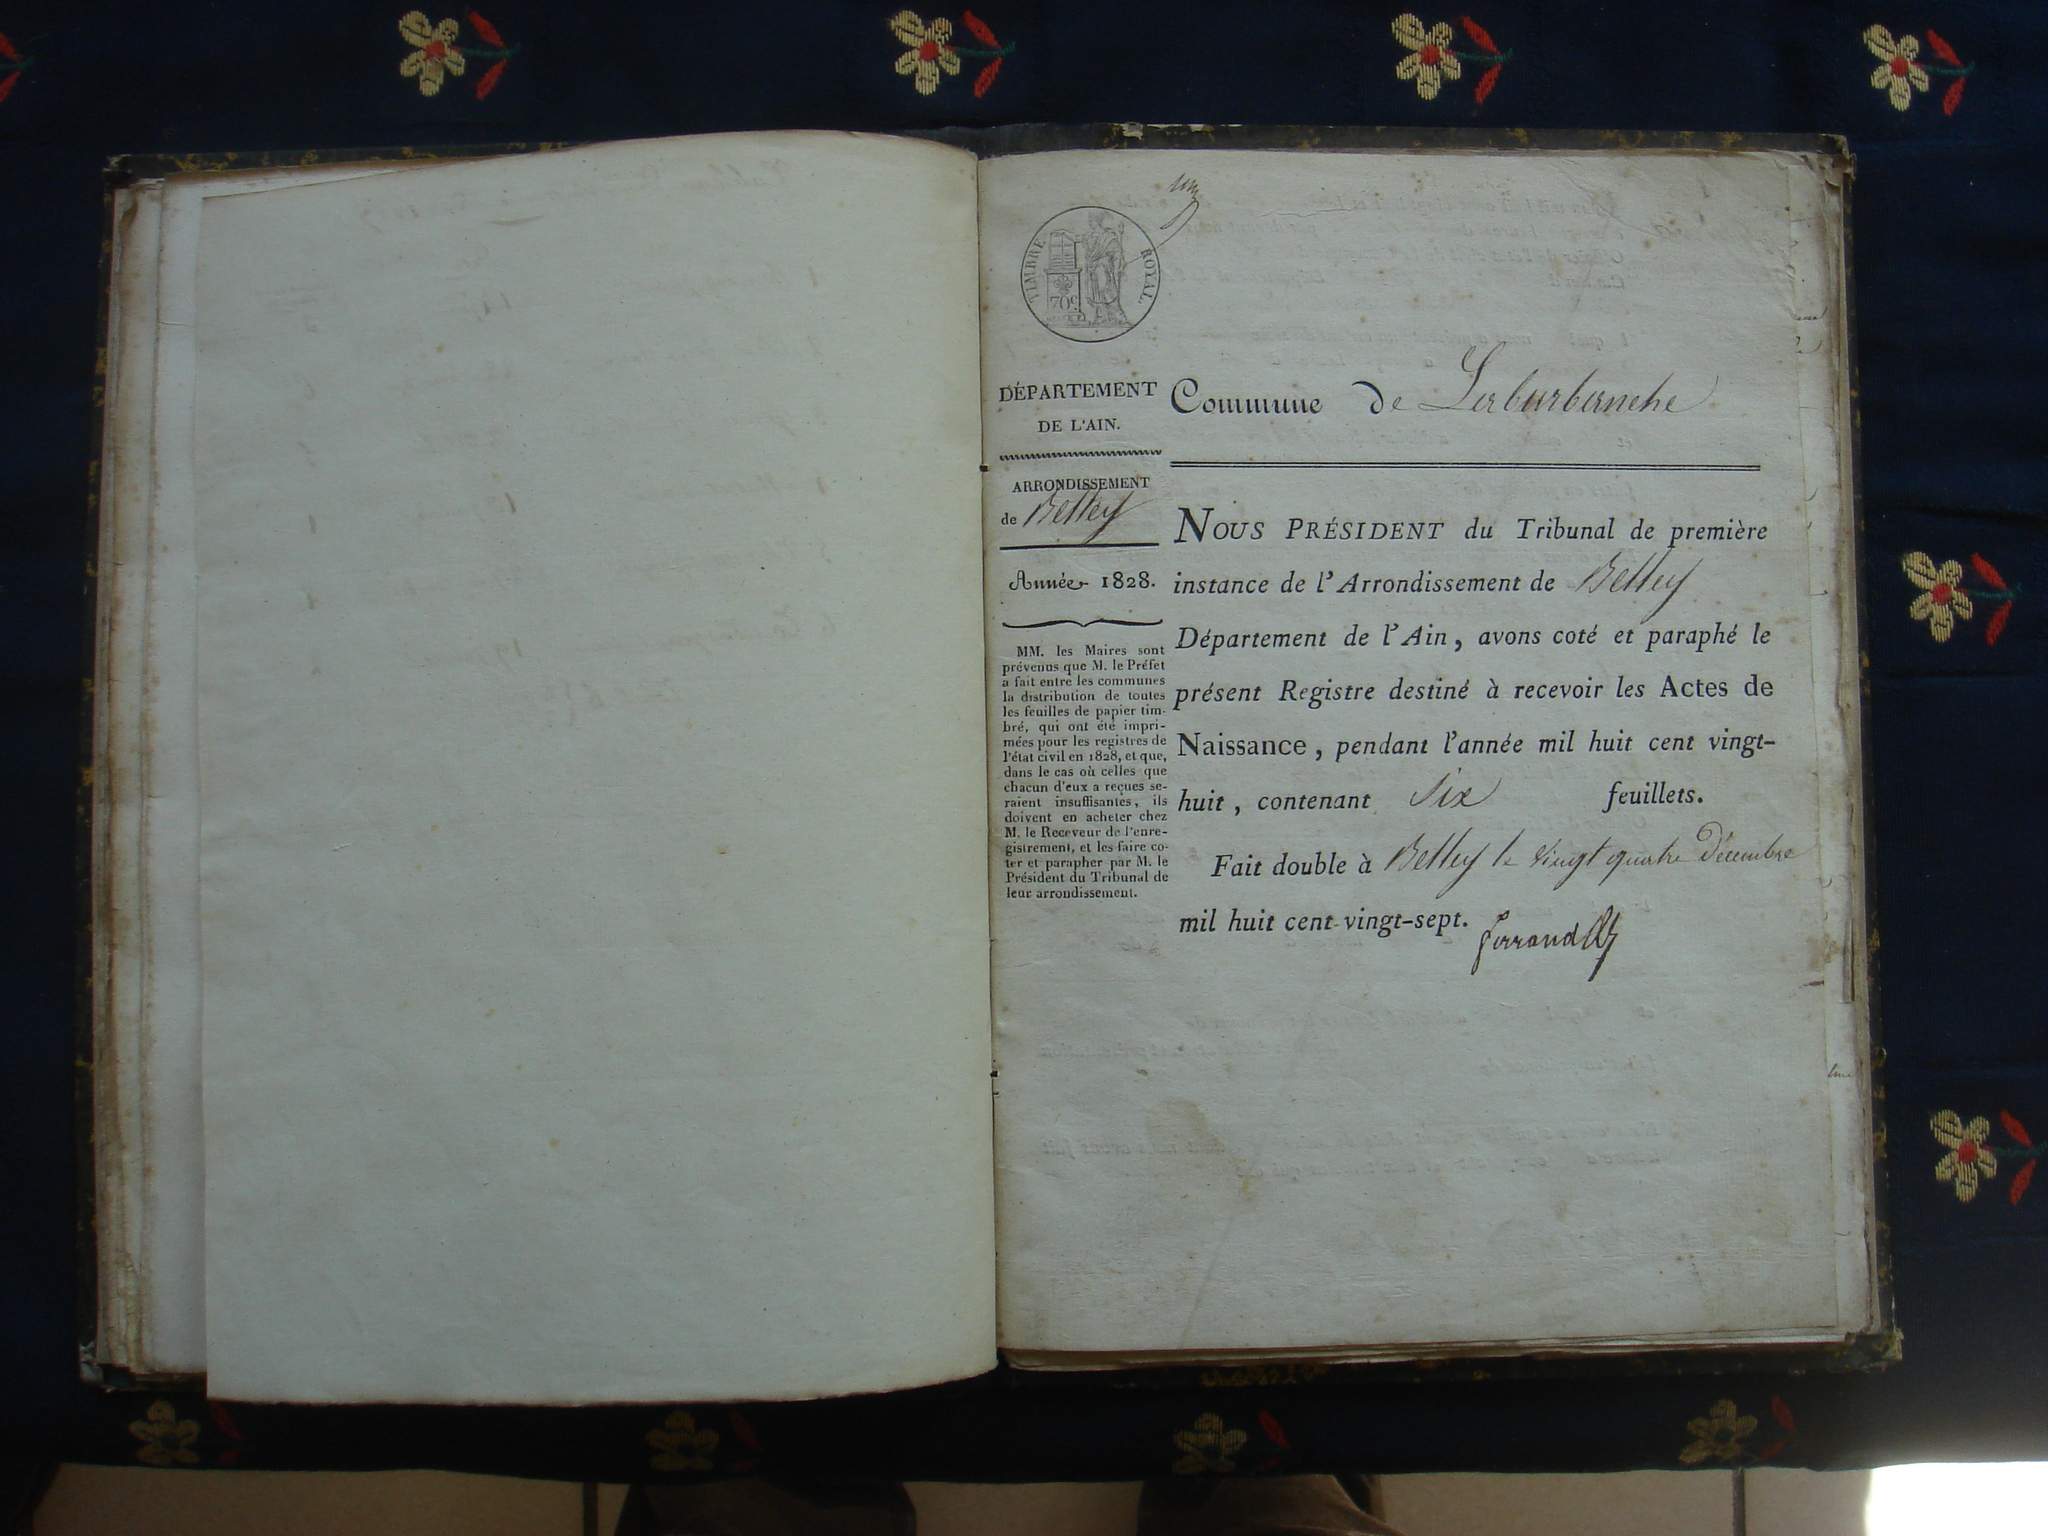 un
TIMBRE ROYAL.
70c.
DÉPARTEMENT
DE L'AIN.
ARRONDISSEMENT
de Belley
Année 1828.
MM. les Maires sont
prévenus que M. le Préfet
a fait entre les communes
la distribution de toutes
les feuilles de papier tim-
bré, qui ont été impri-
mées pour les registres de
l'état civil en 1828, et que,
dans le cas où celles que
chacun d'eux a reçues se-
raient insuffisantes, ils
doivent en acheter chez
M. le Receveur de l'enre-
gistrement, et les faire co-
ter et parapher par M. le
Président du Tribunal de
leur arrondissement.
Commune de Laburbanche
NOUS PRÉSIDENT du Tribunal de première
instance de l'Arrondissement de Belley
Département de l'Ain, avons coté et paraphé le
présent Registre destiné à recevoir les Actes de
Naissance, pendant l'année mil huit cent vingt-
huit, contenant Six feuillets.
Fait double à Belley le vingt quatre Décembre
mil huit cent vingt-sept.
ferrand